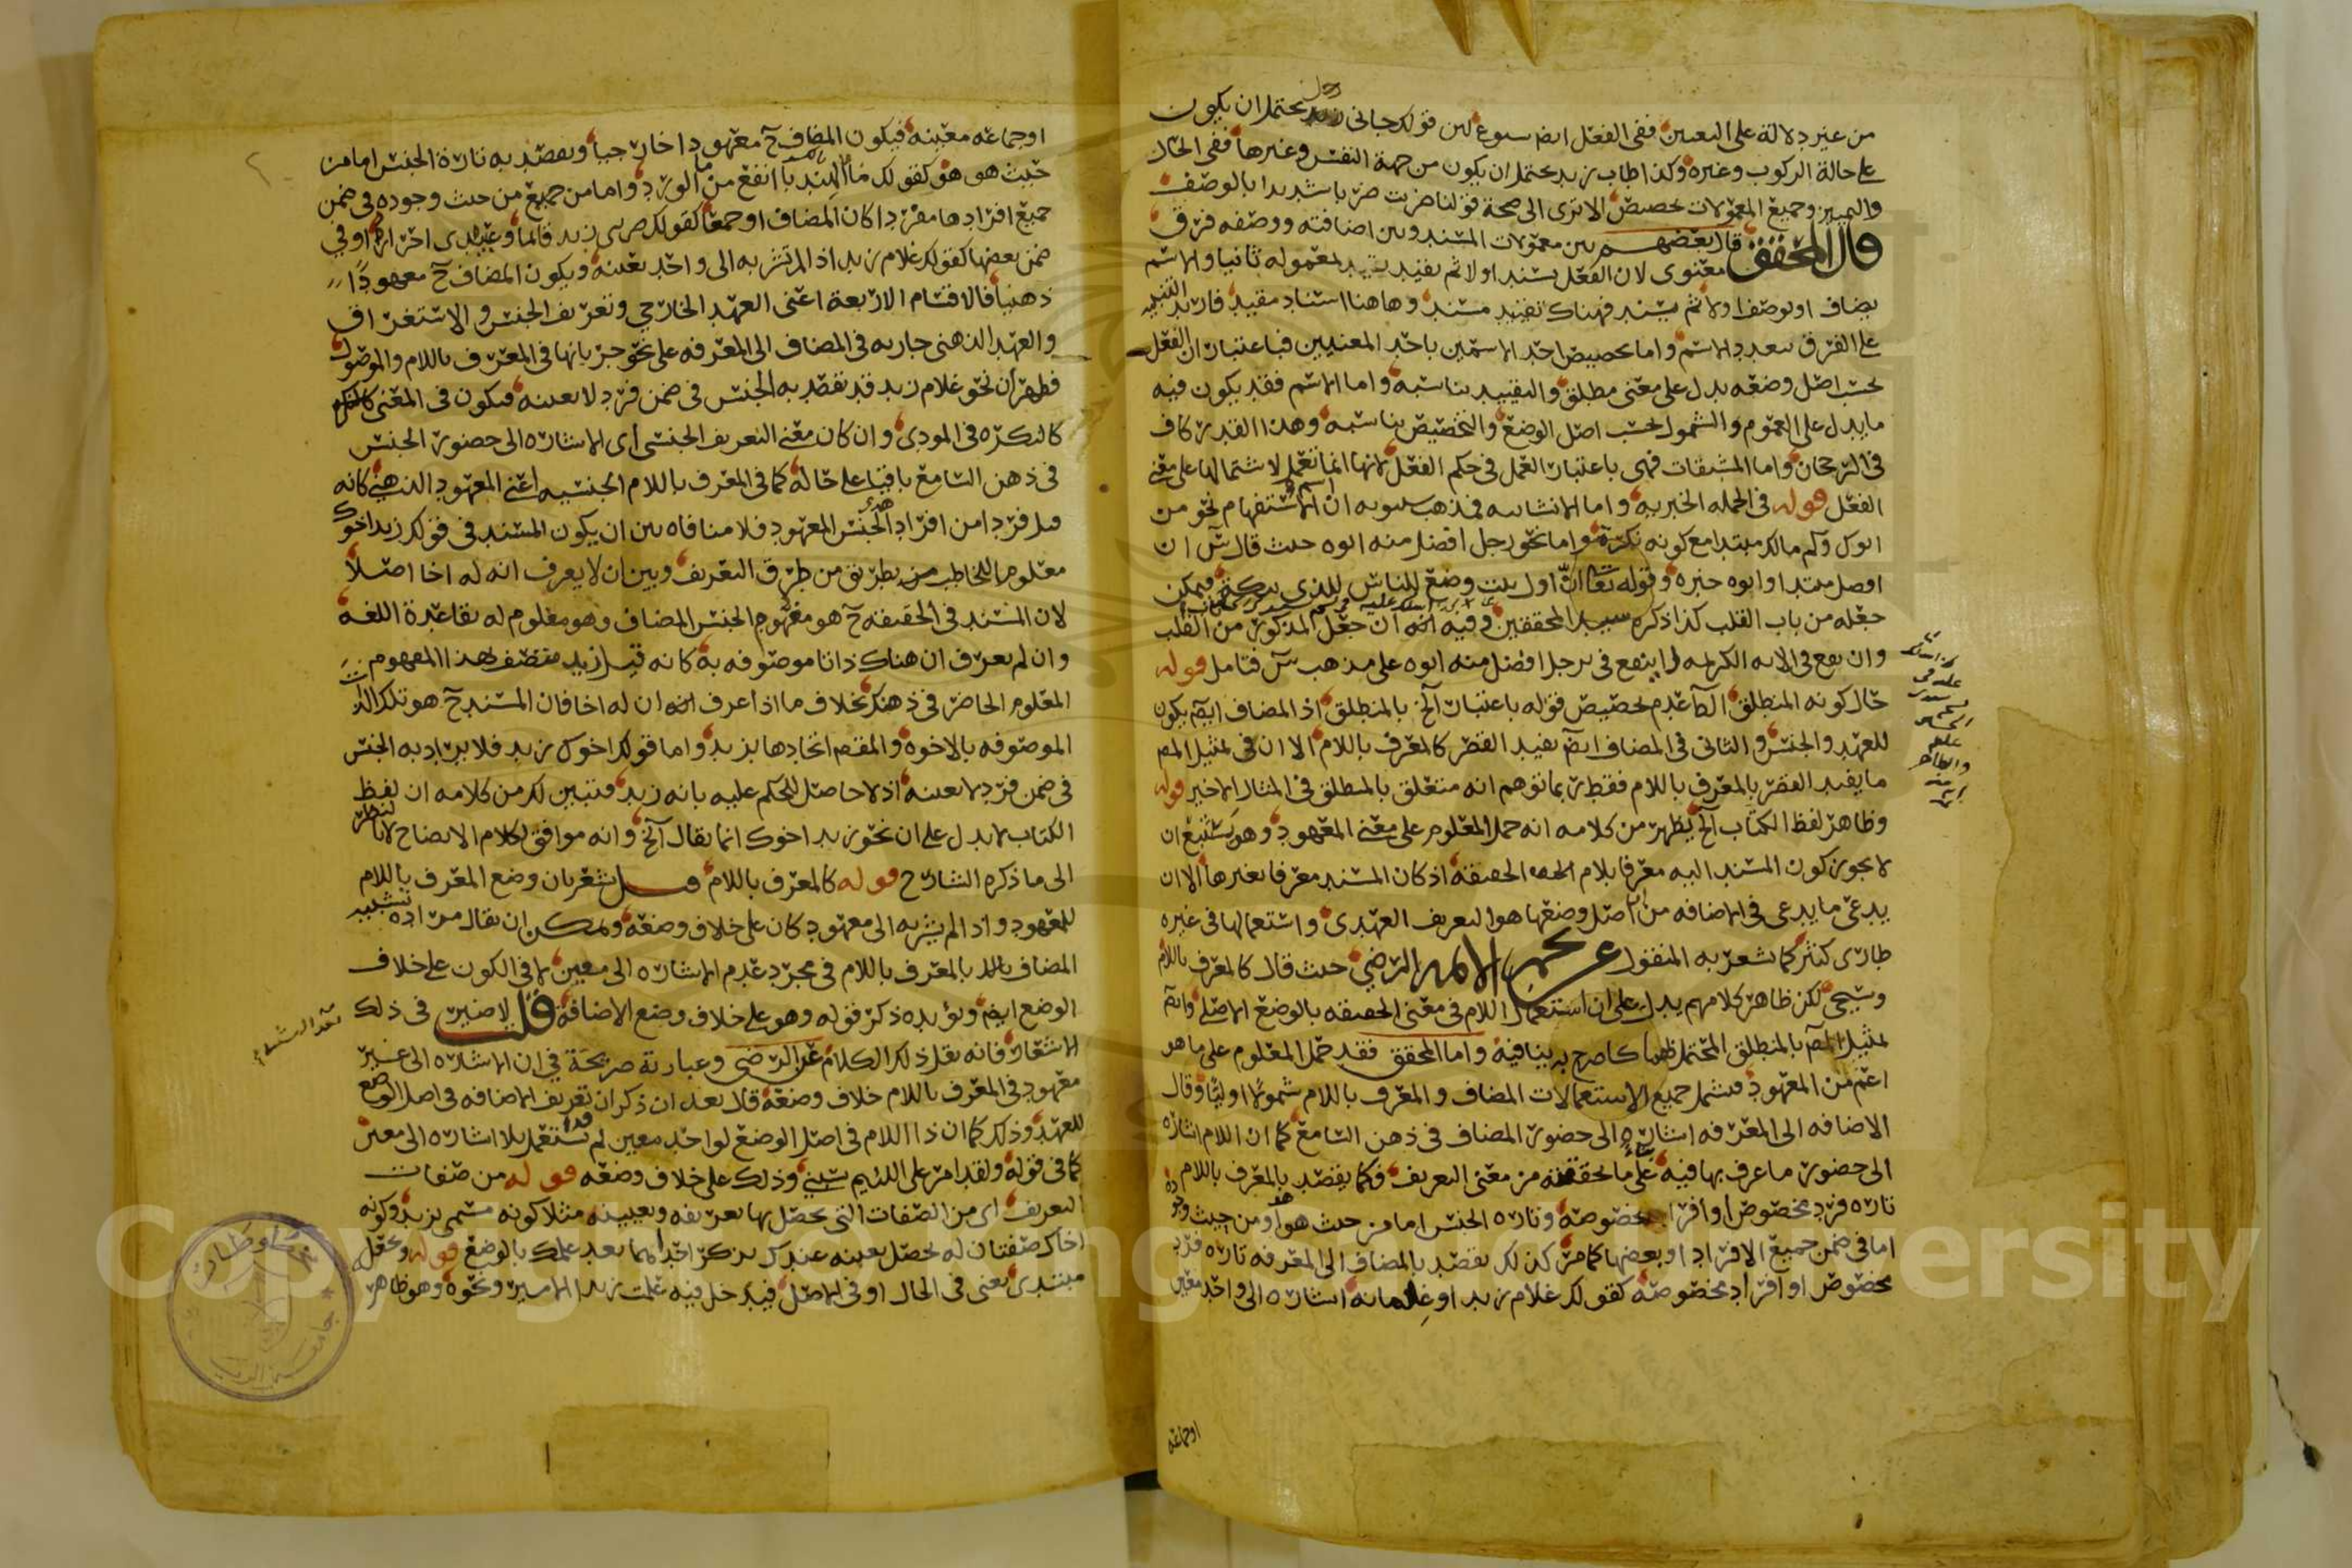 من غير دلالة على التعيين ففي الفعل ايضا شيوع لان قولك جاني رجل يحتمل ان يكون
على حالة الركوب وغيره وكذا طاب زيد يحتمل ان يكون من جهة النفس وغيرها ففي الحال
والتمييز وجميع المعمولات تخصيص الا ترى الى صحة قولنا ضربت ضربا شديدا بالوصف
قال المحقق قال بعضهم بين معمولات المسند وبين اضافته ووصفه فرق
معنوى لان الفعل يسند اولا ثم يقيد لمعموله ثانيا والاسم
يضاف او يوصف اولا ثم يسند فهناك تقييد مسند وها هنا اسناد مقيد فاريد التنبيه
على الفرق بتعدد الاسم واما تخصيص احد الاسمين باحد المعنيين فباعتبار ان الفعل
بحسب اصل وضعه يدل على معنى مطلق والتقييد يناسبه واما الاسم فقد يكون فيه
ما يدل على العموم والشمول بحسب اصل الوضع والتخصيص يناسبه وهذا القدر كاف
في الرجحان واما المشتقات فهى باعتبار العمل في حكم الفعل لانها انما تعمل لاشتمالها على معنى
الفعل قوله في الجمله الخبريه واما الانشائيه فمذهب سيبويه ان اسم الاستفهام نحو من
ابوك وكم مالك مبتدا مع كونه نكرة واما نحو رجل افضل منه ابوه حيث قال س ان
افضل مبتدا وابوه خبره وقوله تعا ان اول بيت وضع للناس للذى ببكة فيمكن
جعله من باب القلب كذا ذكره سيد المحققين وفيه انه ان جعل المذكور من القلب
وان يقع في الايه الكريمه لم ينفع في رجل افضل منه ابوه على مذهب س فتامل قوله
حال كونه المنطلق الخ عدم تخصيص قوله باعتبار الخ بالمنطلق اذ المضاف ايضا يكون
للعهد والجنس والثانى في المضاف ايضا يفيد القصر كالمعرف باللام الا ان في تمثيل المص
ما يفيد القصر بالمعرف باللام فقط ربما توهم انه متعلق بالمنطلق في المثال الاخير قوله
وظاهر لفظ الكتاب الخ يظهر من كلامه انه حمل المعلوم على معنى المعهود وهو يستتبع ان
لا يجوز كون المسند اليه معرفا بلام الحقيقة اذ كان المسند معرفا بغيرها الا ان
يدعى ما يدعى في الاضافه من ان اصل وضعها هو التعريف العهدى واستعمالها في غيره
طارى كثير كما يشعر به المنقول عن نجم الائمه الرضى حيث قال كالمعرف باللام
وسيجى لكن ظاهر كلامهم يدل على ان استعمال اللام في معنى الحقيقه بالوضع الاصلى وايضا
تمثيل المص بالمنطلق المحتمل لهما كما صرح به ينافيه واما المحقق فقد حمل المعلوم على ما هو
اعم من المعهود فيشمل جميع الاستعمالات المضاف والمعرف باللام شمولا اوليا وقال
الاضافه الى المعرفه اشارة الى حضور المضاف في ذهن السامع كما ان اللام اشارة
الى حضور ما عرف بها فيه بناء على ما تحققته من معنى التعريف فكما يقصد بالمعرف باللام
تاره فرد مخصوص او افراد مخصوصة وتاره الجنس اما من حيث هو هو او من حيث وجوده
اما في ضمن جميع الافراد او بعضها كما مر كذلك يقصد بالمضاف الى المعرفه تاره فرد
مخصوص او افراد مخصوصة كقولك غلام زيد او غلمانه اشاره الى واحد معين
او جماعه
او جماعه معينه فيكون المضاف ح معهودا خارجيا ويقصد به تارة الجنس اما من
حيث هو هو كقولك ماء الهندبا انفع من ماء الورد واما من جميع من حيث وجوده في ضمن
جميع افرادها مفردا كان المضاف او جمعا كقولك ضربى زيد قائما وعبيدى احرار او في
ضمن بعضها كقولك غلام زيد اذا لم تشر به الى واحد بعينه ويكون المضاف ح معهودا
ذهنيا فالاقسام الاربعة اعنى العهد الخارجي وتعريف الجنس والاستغراق
والعهد الذهنى جاريه في المضاف الى المعرفه على نحو جريانها في المعرف باللام والموصول
فظهر ان نحو غلام زيد قد يقصد به الجنس في ضمن فرد لا بعينه فيكون في المعنى
كالنكره في المودى وان كان معنى التعريف الجنسى اى الاشاره الى حضور الجنس
في ذهن السامع باقيا على حاله كما في المعرف باللام الجنسيه اعنى المعهود الذهنى كانه
قيل فرد من افراد هذا الجنس المعهود فلا منافاه بين ان يكون المسند في قولك زيد اخوك
معلوما للمخاطب بطريق من طرق التعريف وبين ان لا يعرف انه له اخا اصلا
لان المسند في الحقيقه ح هو مفهوم الجنس المضاف وهو معلوم له بقاعدة اللغه
وان لم يعرف ان هناك ذاتا موصوفه به كانه قيل زيد متصف بهذا المفهوم
المعلوم الحاضر في ذهنك بخلاف ما اذا عرف انه ان له اخا فان المسند ح هو تلك الذات
الموصوفه بالاخوه والمقصد اتحادها بزيد واما قولك اخوك زيد فلا يراد به الجنس
في ضمن فرد لا بعينه اذ لا حاصل للحكم عليه بانه زيد فتبين لك من كلامه ان لفظ
الكتاب لا يدل على ان نحو زيد اخوك انما يقال الخ وانه موافق لكلام الايضاح لا بالنظر
الى ما ذكره الشارح قوله كالمعرف باللام قيل يشعر بان وضع المعرف باللام
للمعهود واذا لم يشر به الى معهود كان على خلاف وضعه ويمكن ان يقال مراده تشبيه
المضاف بالمعرف باللام في مجرد عدم الاشاره الى معين لا في الكون على خلاف
الوضع ايضا ويؤيده ذكر قوله وهو على خلاف وضع الاضافه قلت لا ضير في ذلك
الاشعار فانه نقل ذلك الكلام عن الرضى وعبارته صريحة في ان الاشاره الى غير
معهود في المعرف باللام خلاف وضعه قال بعد ان ذكر ان تعريف الاضافه في اصل الوضع
للعهد وذلك كما ان ذا اللام في اصل الوضع لواحد معين ثم قد يستعمل بلا اشاره الى معين
كما في قوله ولقد امر على اللئيم يسبنى وذلك على خلاف وضعه قوله من صفات
التعريف اى من الصفات التى يحصل بها تعريفه وتعيينه مثلا كونه مسمى بزيد وكونه
اخاك صفتان له يحصل تعيينه عندك بذكر احدهما بعد علمك بالوضع قوله وتجعل
مبتدى يعنى في الحال او في الاصل فيدخل فيه علمت زيدا الامير ونحوه وهو ظاهر
Copyright © King Saud University